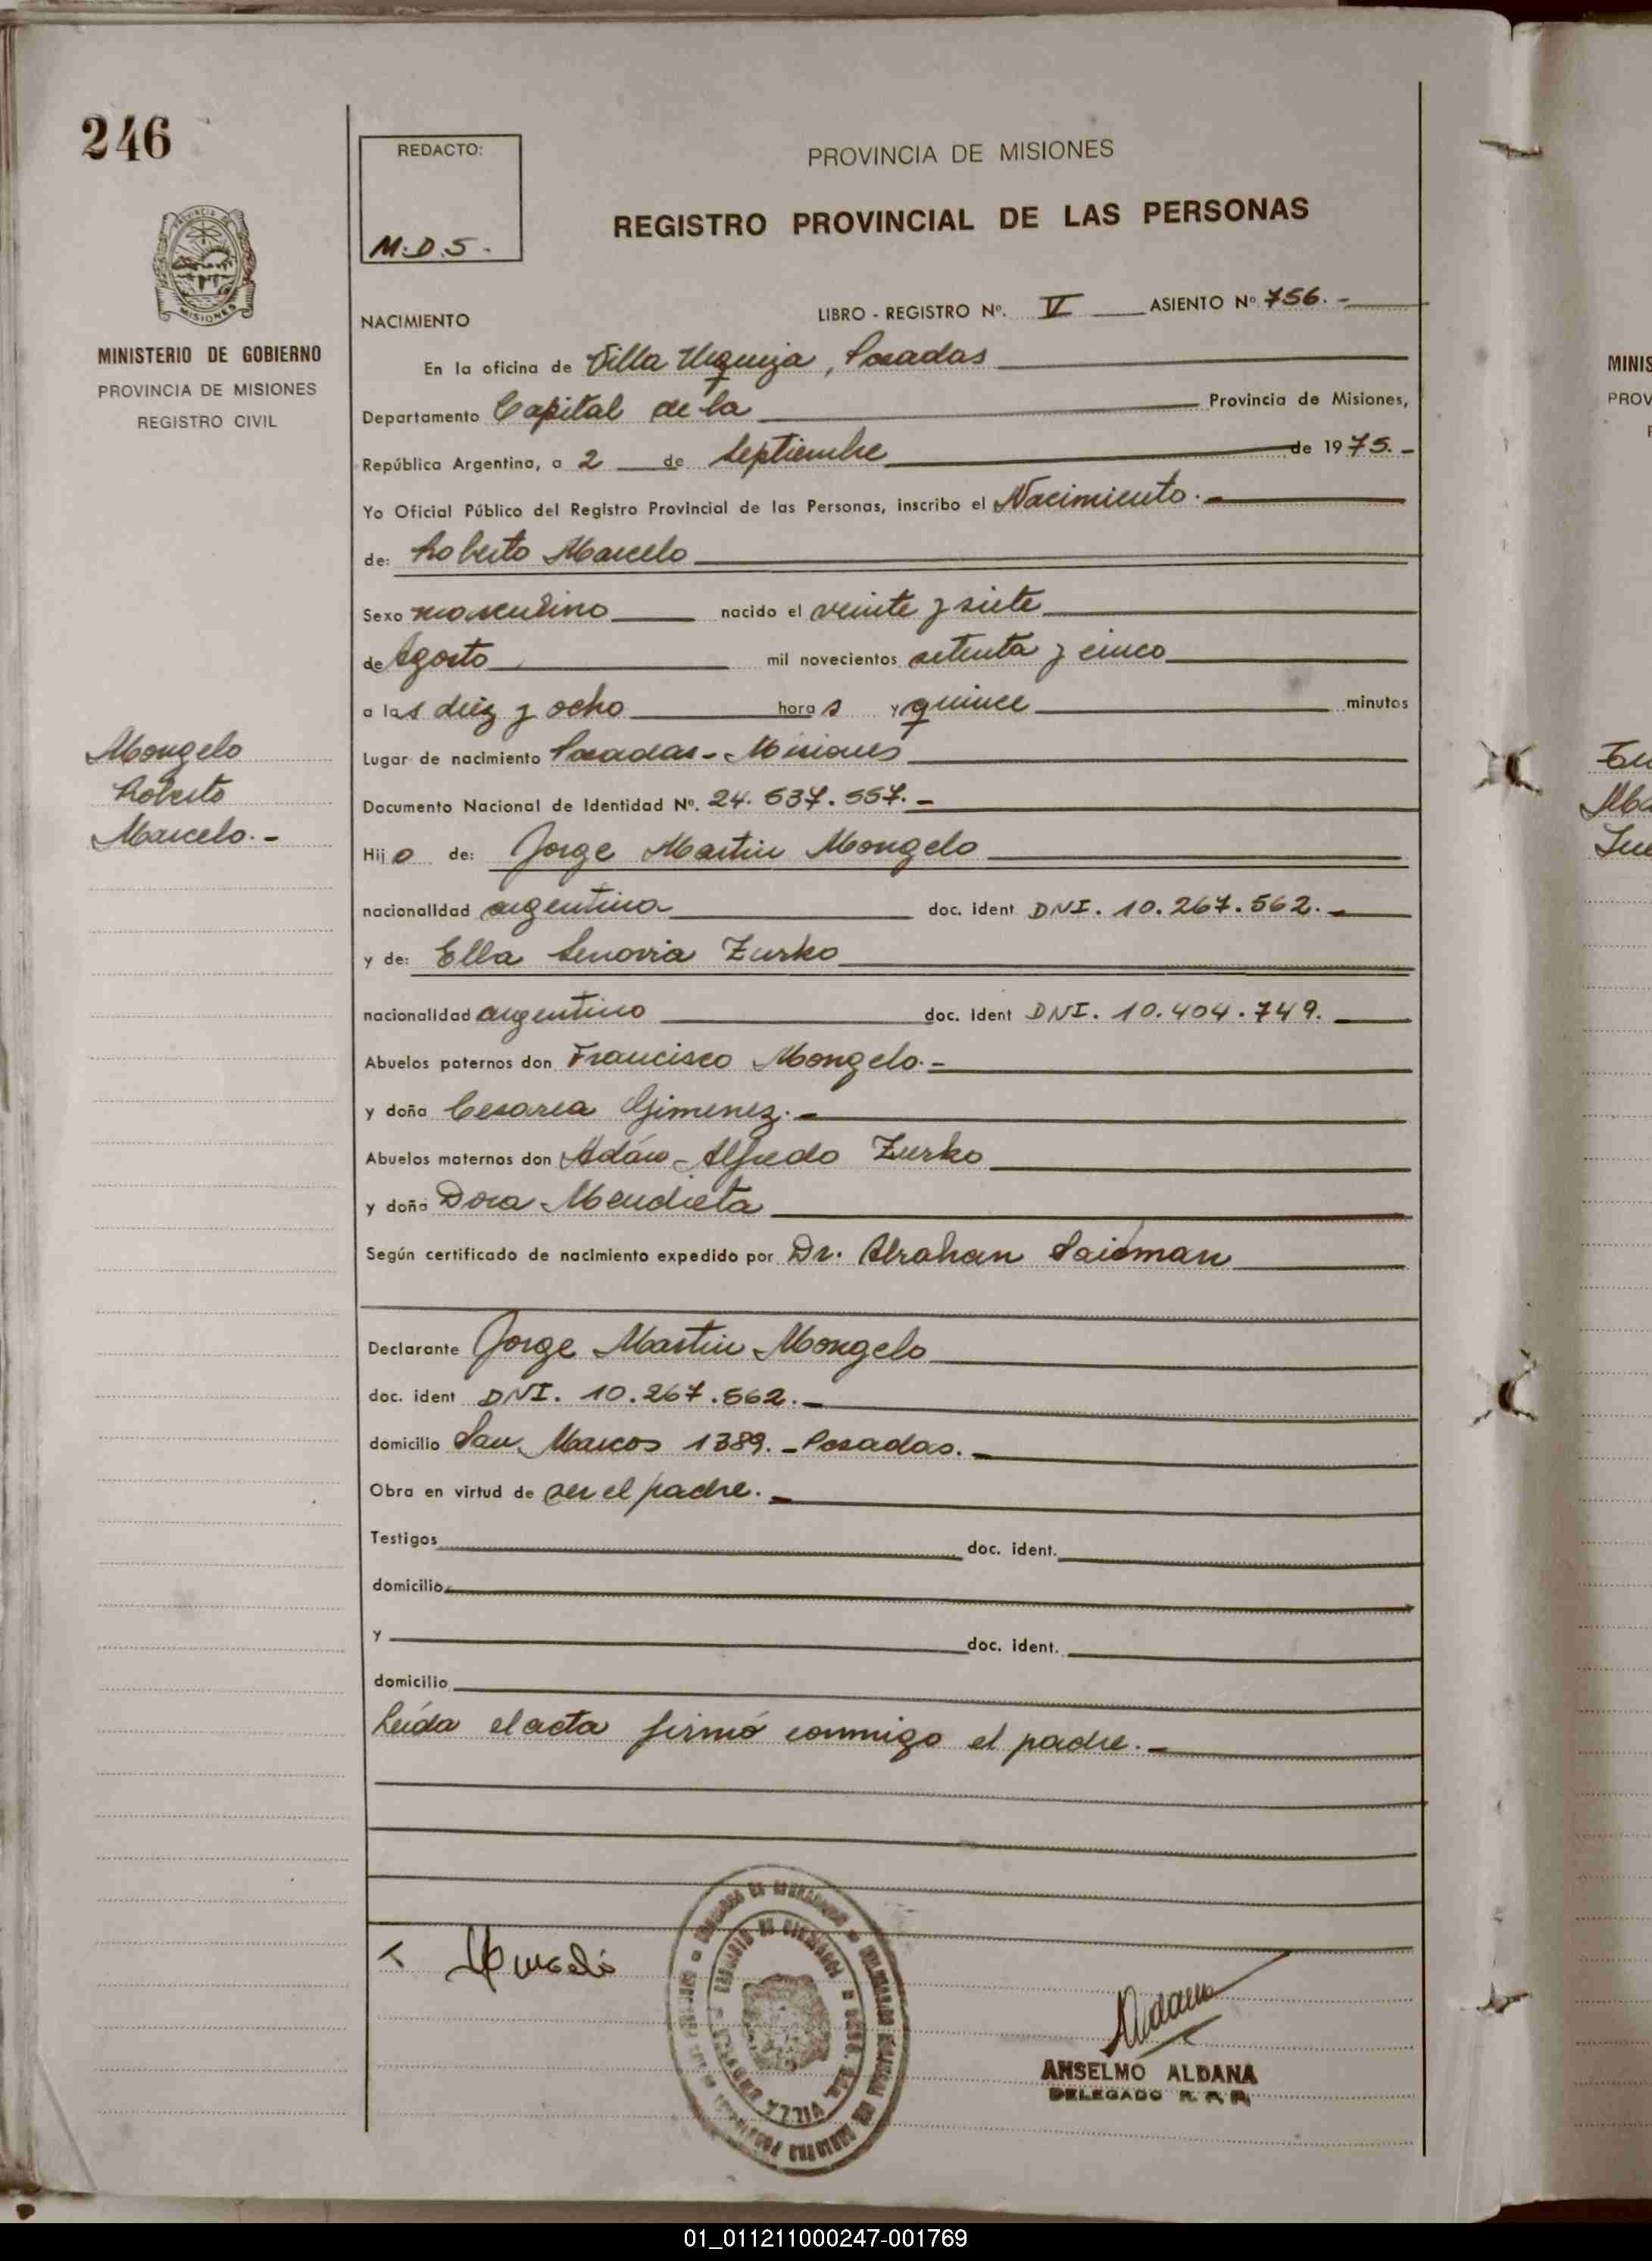 246
REDACTO:
M.D.S.-
PROVINCIA DE MISIONES
REGISTRO PROVINCIAL DE LAS PERSONAS
MISIONES
MINISTERIO DE GOBIERNO
PROVINCIA DE MISIONES
REGISTRO CIVIL
NACIMIENTO LIBRO - REGISTRO Nº. V ASIENTO Nº 756.-
En la oficina de Villa Urquiza, Posadas
Departamento Capital de la Provincia de Misiones,
República Argentina, a 2 de Septiembre de 1975.-
Yo Oficial Público del Registro Provincial de las Personas, inscribo el Nacimiento.-
de: Roberto Marcelo
Sexo masculino nacido el veinte y siete
de Agosto mil novecientos setenta y cinco
a las diez y ocho horas y quince minutos
Lugar de nacimiento Posadas - Misiones
Documento Nacional de Identidad Nº. 24.537.557.-
Mongelo
Roberto
Marcelo.-
Hijo de: Jorge Martin Mongelo
nacionalidad argentina doc. ident DNI. 10.267.562.-
y de: Ella Zurko
nacionalidad argentino doc. ident DNI. 10.404.749.
Abuelos paternos don Francisco Mongelo.-
y doña Cesarea Gimenez.-
Abuelos maternos don Adán Alfredo Zurko
y doña Dora Mendieta
Según certificado de nacimiento expedido por Dr. Abrahan
Declarante Jorge Martin Mongelo
doc. ident DNI. 10.267.562.-
domicilio San Marcos 1389.-Posadas.-
Obra en virtud de ser el padre.-
Testigos doc. ident.
domicilio
y doc. ident.
domicilio
Leída el acta firmó conmigo el padre.-
Aldana
ANSELMO ALDANA
DELEGADO R. P. P.
VILLA URQUIZA
MINIS
PROV
01_011211000247-001769